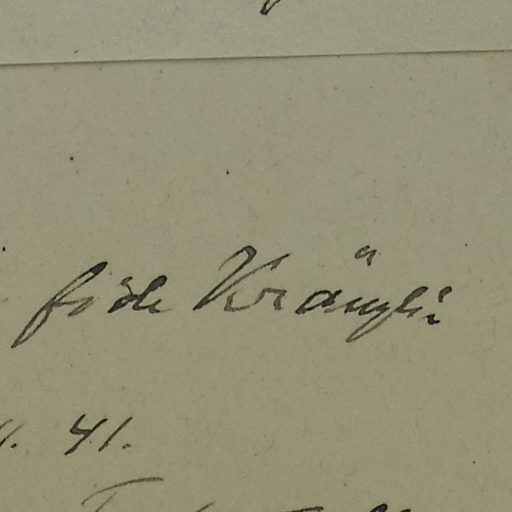 fide Kränzlin
41.